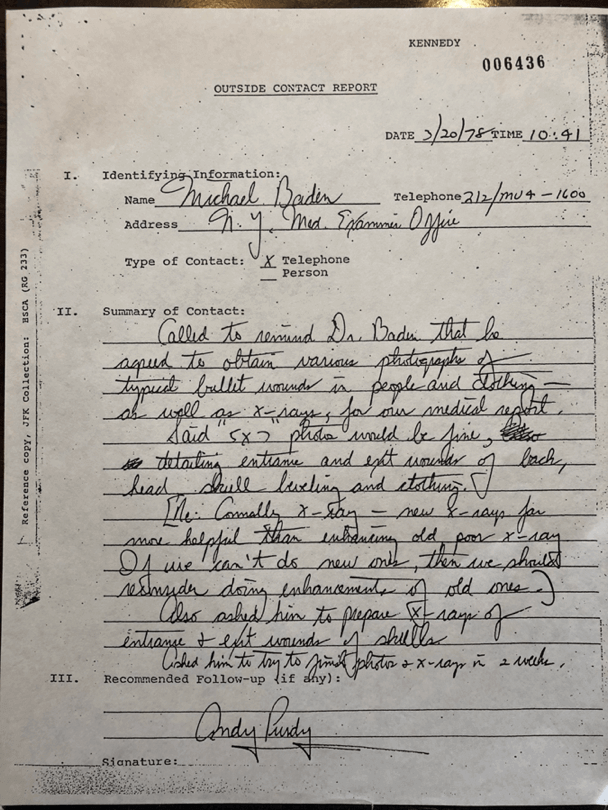 KENNEDY
006436
OUTSIDE CONTACT REPORT
DATE 3/20/78 TIME 10:41
I. Identifying Information:
Name Michael Baden Telephone 212/MU4-1600
Address N.Y. Med. Examiner Office
Type of Contact: X Telephone
Person
II. Summary of Contact:
Called to remind Dr. Baden that he
agreed to obtain various photographs of
typical bullet wounds in people and clothing —
as well as x-rays, for our medical report.
Said "5x7" photos would be fine,
detailing entrance and exit wounds of back,
head, skull beveling and clothing.
[Re: Connally x-ray — new x-rays far
more helpful than enhancing old, poor x-ray
If we can't do new ones, then we should
reconsider doing enhancements of old ones.]
Also asked him to prepare x-rays of
entrance & exit wounds of skulls
Asked him to try to finish photos & x-rays in 2 weeks.
III. Recommended Follow-up (if any):
Andy Purdy
Signature:
Reference copy, JFK Collection: HSCA (RG 233)